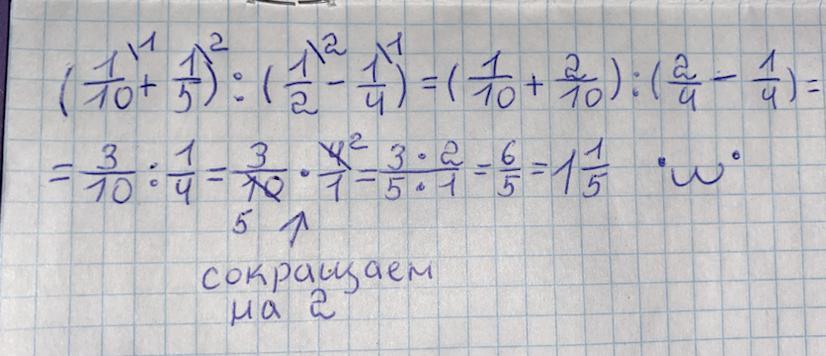 (1/10\1 + 1/5\2) : (1/2\2 - 1/4\1) = (1/10 + 2/10) : (2/4 - 1/4) =
= 3/10 : 1/4 = 3/10 · 4/1 2 = 3·2/5·1 = 6/5 = 1 1/5 •ω•
5 ↑
сокращаем
на 2